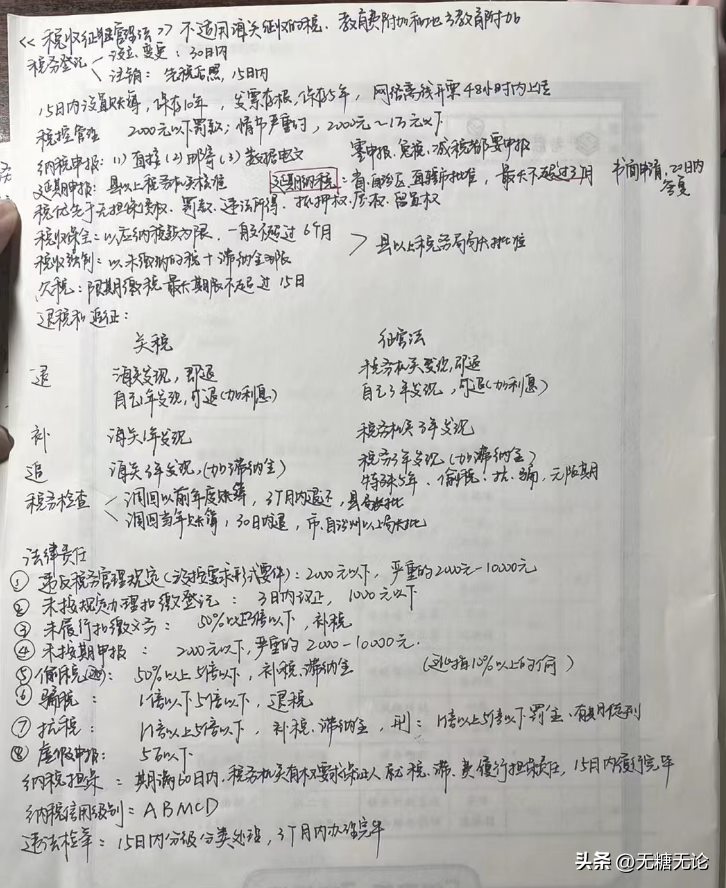 《税收征收管理法》不适用海关征收的税、教育费附加和地方教育附加
税务登记 设立、变更：30日内
注销：先税后照，15日内
15日内设置账簿，保存10年，发票存根，保存5年，网络离线开票48小时内上传
税控管理 2000元以下罚款；情节严重的，2000元~1万元以下
纳税申报：(1) 直接 (2) 邮寄 (3) 数据电文 零申报、免税、减税都要申报
延期申报：县以上税务机关核准 延期纳税：省、自治区、直辖市批准，最长不超过3个月 书面申请，20日内答复
税优先于无担保债权、罚款、违法所得、抵押权、质权、留置权
税收保全：以应纳税款为限，一般不超过6个月
税收强制：以未缴纳的税+滞纳金为限 > 县以上税务局局长批准
欠税：限期缴税最长期限不超过15日
退税和追征：
关税 征管法
退 海关发现，即退 税务机关发现，即退
自己1年发现，可退(加利息) 自己3年发现，可退(加利息)
补 海关1年发现 税务机关3年发现
追 海关3年发现，(加滞纳金) 税务3年发现(加滞纳金)
特殊5年、偷税、抗、骗，无限期
税务检查 调回以前年度账簿，3个月内退还，县局长批
调回当年账簿，30日内退，市、自治州以上局长批
法律责任
① 违反税务管理规定(没按要求形式要件)：2000元以下，严重的2000元-10000元
② 未按规定办理扣缴登记：3日内改正，1000元以下
③ 未履行扣缴义务：50%以上3倍以下，补税
④ 未按期申报：2000元以下，严重的2000-10000元.
⑤ 偷税(逃)：50%以上5倍以下，补税、滞纳金 (逃指10%以上的偷)
⑥ 骗税：1倍以下5倍以下，退税
⑦ 抗税：1倍以上5倍以下，补税、滞纳金，刑：1倍以上5倍以下罚金、有期徒刑
⑧ 虚假申报：5万以下
纳税担保：期满60日内，税务机关有权要求保证人就税、滞、费履行担保责任，15日内履行完毕
纳税信用级别：ABMCD
违法检举：15日内分级分类处理，3个月内办理完毕
头条 @无糖无论